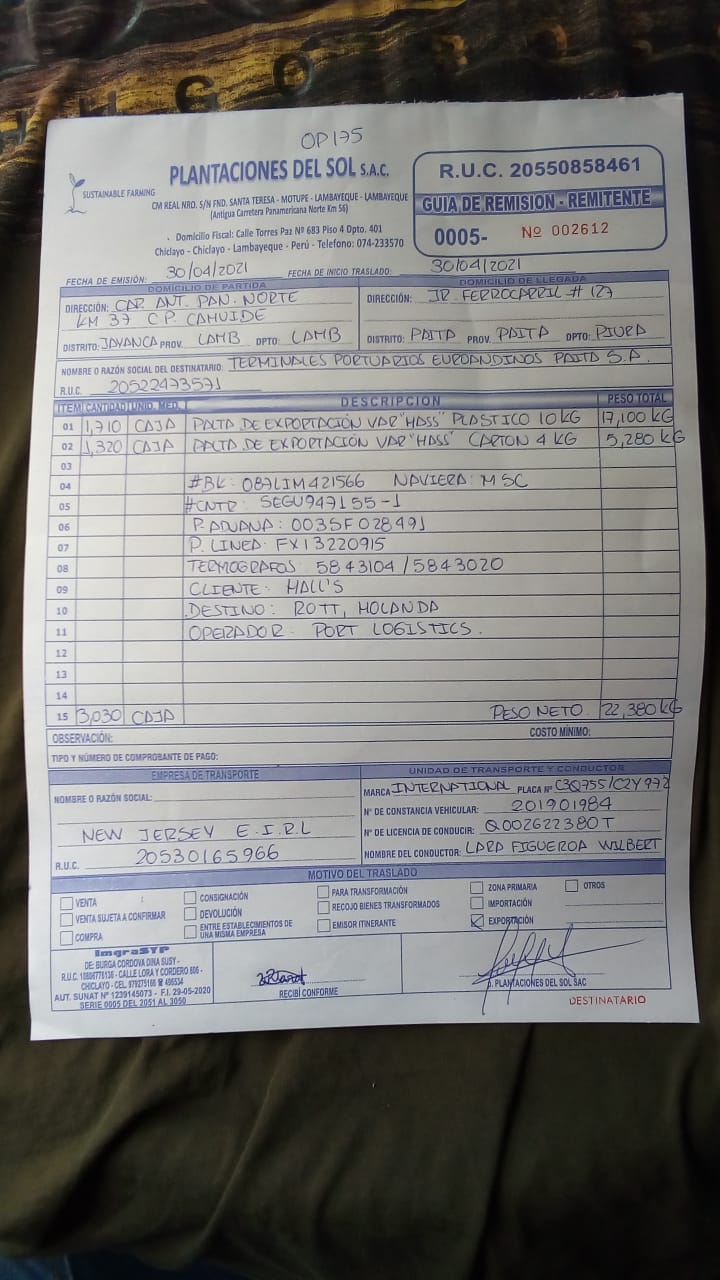 OP175
SUSTAINABLE FARMING
PLANTACIONES DEL SOL S.A.C.
CM REAL NRO. S/N FND. SANTA TERESA - MOTUPE - LAMBAYEQUE - LAMBAYEQUE
(Antigua Carretera Panamericana Norte Km 56)
. Domicilio Fiscal: Calle Torres Paz Nº 683 Piso 4 Dpto. 401
Chiclayo - Chiclayo - Lambayeque - Perú - Telefono: 074-233570
R.U.C. 20550858461
GUIA DE REMISION - REMITENTE
0005- Nº 002612
FECHA DE EMISIÓN: 30/04/2021 FECHA DE INICIO TRASLADO: 30/04/2021
DOMICILIO DE PARTIDA
DIRECCIÓN: CAR. ANT. PAN. NORTE
KM 37 C.P. CAHUIDE
DISTRITO: JAYANCA PROV. LAMB DPTO: LAMB
DOMICILIO DE LLEGADA
DIRECCIÓN: JR. FERROCARRIL # 127
DISTRITO: PAITA PROV. PAITA DPTO: PIURA
NOMBRE O RAZÓN SOCIAL DEL DESTINATARIO: TERMINALES PORTUARIOS EUROANDINOS PAITA S.A.
R.U.C. 20522473571
ITEM CANTIDAD UNID. MED. DESCRIPCION PESO TOTAL
01 1,710 CAJA PALTA DE EXPORTACIÓN VAR "HASS" PLASTICO 10 KG 17,100 KG
02 1,320 CAJA PALTA DE EXPORTACIÓN VAR "HASS" CARTON 4 KG 5,280 KG
03
04 #BK: 087LIM421566 NAVIERA: MSC
05 #CNTR: SEGU947155-1
06 P. ADUANA: 0035F028491
07 P. LINEA: FX13220915
08 TERMOGRAFOS: 5843104 / 5843020
09 CLIENTE: HALL'S
10 DESTINO: ROTT, HOLANDA
11 OPERADOR: PORT LOGISTICS.
12
13
14
15 3,030 CAJA PESO NETO 22,380 KG
OBSERVACIÓN: COSTO MÍNIMO:
TIPO Y NÚMERO DE COMPROBANTE DE PAGO:
EMPRESA DE TRANSPORTE
NOMBRE O RAZÓN SOCIAL:
NEW JERSEY E.I.R.L
R.U.C. 20530165966
UNIDAD DE TRANSPORTE Y CONDUCTOR
MARCA INTERNATIONAL PLACA Nº C3Q755/C2Y972
Nº DE CONSTANCIA VEHICULAR: 201901984
Nº DE LICENCIA DE CONDUCIR: Q002622380T
NOMBRE DEL CONDUCTOR: LARA FIGUEROA WILBERT
MOTIVO DEL TRASLADO
VENTA
VENTA SUJETA A CONFIRMAR
COMPRA
CONSIGNACIÓN
DEVOLUCIÓN
ENTRE ESTABLECIMIENTOS DE
UNA MISMA EMPRESA
PARA TRANSFORMACIÓN
RECOJO BIENES TRANSFORMADOS
EMISOR ITINERANTE
ZONA PRIMARIA
IMPORTACIÓN
EXPORTACIÓN
OTROS
ImgraSYP
DE: BURGA CORDOVA DINA SUSY -
R.U.C. 10806776136 - CALLE LORA Y CORDERO 806 -
CHICLAYO - CEL. 979275166
AUT. SUNAT Nº 1239145073 - F.I. 29-05-2020
SERIE 0005 DEL 2051 AL 3050
RECIBÍ CONFORME
p. PLANTACIONES DEL SOL SAC
DESTINATARIO